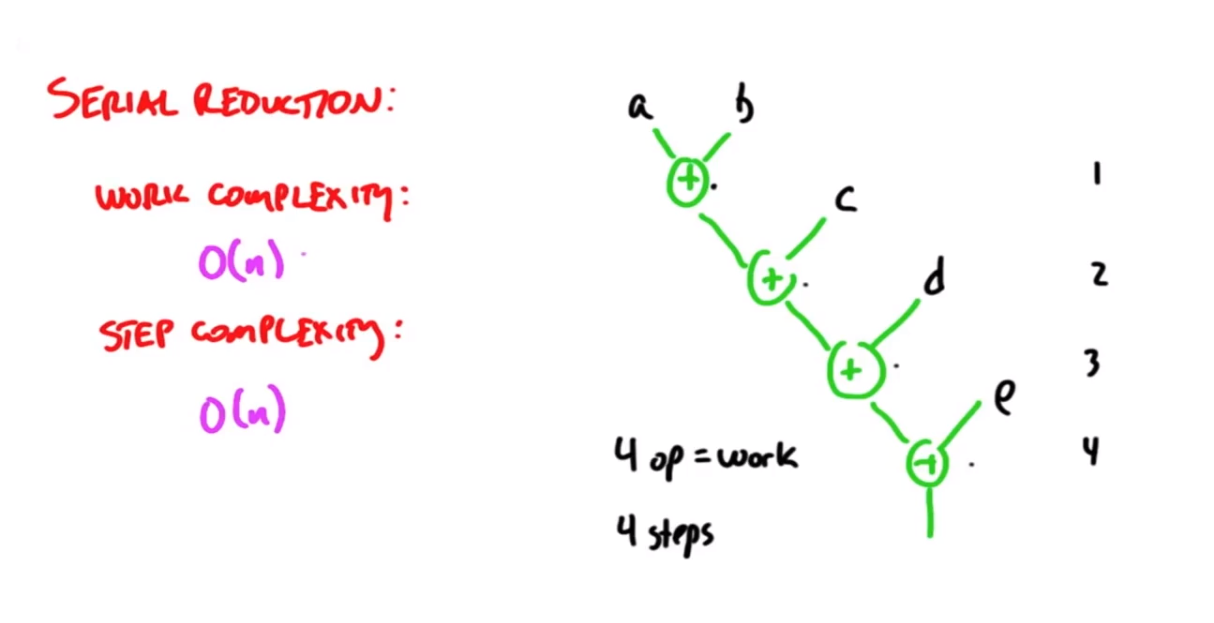 SERIAL REDUCTION:
WORK COMPLEXITY:
O(n)
STEP COMPLEXITY:
O(n)
a b
+ 1
c
+ 2
d
+ 3
e
+ 4
4 op = work
4 steps